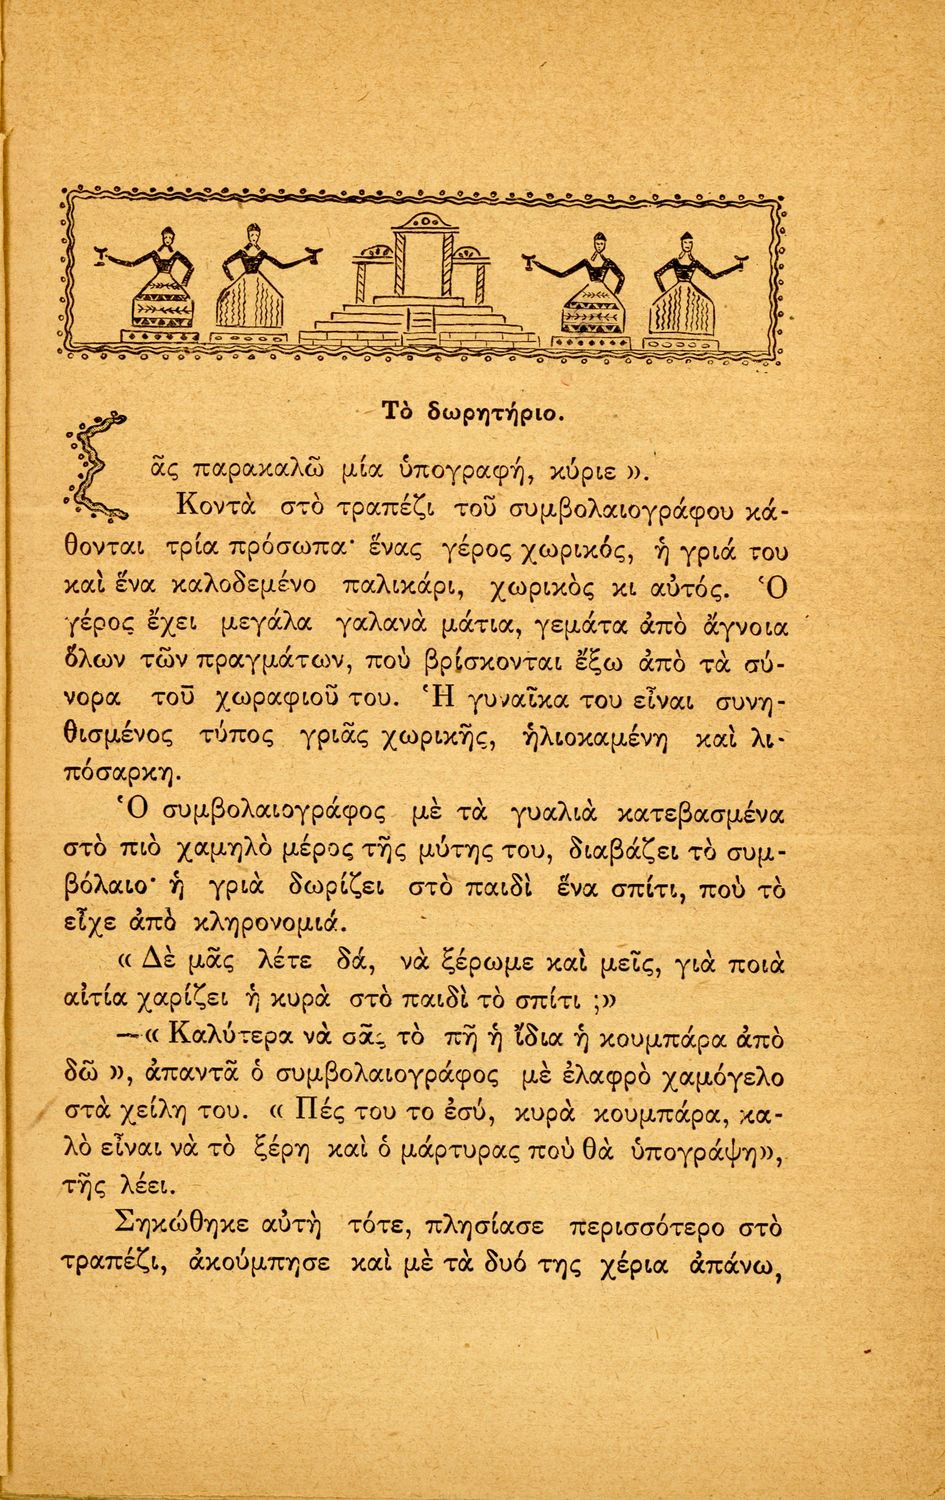 Τὸ δωρητήριο.
Σᾶς παρακαλῶ μία ὑπογραφή, κύριε ».
Κοντὰ στὸ τραπέζι τοῦ συμβολαιογράφου κά-
θονται τρία πρόσωπα· ἕνας γέρος χωρικός, ἡ γριά του
καὶ ἕνα καλοδεμένο παλικάρι, χωρικὸς κι αὐτός. Ὁ
γέρος ἔχει μεγάλα γαλανὰ μάτια, γεμάτα ἀπὸ ἄγνοια
ὅλων τῶν πραγμάτων, ποὺ βρίσκονται ἔξω ἀπὸ τὰ σύ-
νορα τοῦ χωραφιοῦ του. Ἡ γυναῖκα του εἶναι συνη-
θισμένος τύπος γριᾶς χωρικῆς, ἡλιοκαμένη καὶ λι-
πόσαρκη.
Ὁ συμβολαιογράφος μὲ τὰ γυαλιὰ κατεβασμένα
στὸ πιὸ χαμηλὸ μέρος τῆς μύτης του, διαβάζει τὸ συμ-
βόλαιο· ἡ γριὰ δωρίζει στὸ παιδὶ ἕνα σπίτι, ποὺ τὸ
εἶχε ἀπὸ κληρονομιά.
« Δὲ μᾶς λέτε δά, νὰ ξέρωμε καὶ μεῖς, γιὰ ποιὰ
αἰτία χαρίζει ἡ κυρὰ στὸ παιδὶ τὸ σπίτι ;»
—« Καλύτερα νὰ σᾶς τὸ πῆ ἡ ἴδια ἡ κουμπάρα ἀπὸ
δῶ », ἀπαντᾶ ὁ συμβολαιογράφος μὲ ἐλαφρὸ χαμόγελο
στὰ χείλη του. « Πές του το ἐσύ, κυρὰ κουμπάρα, κα-
λὸ εἶναι νὰ τὸ ξέρη καὶ ὁ μάρτυρας ποὺ θὰ ὑπογράψη»,
τῆς λέει.
Σηκώθηκε αὐτὴ τότε, πλησίασε περισσότερο στὸ
τραπέζι, ἀκούμπησε καὶ μὲ τὰ δυό της χέρια ἀπάνω,